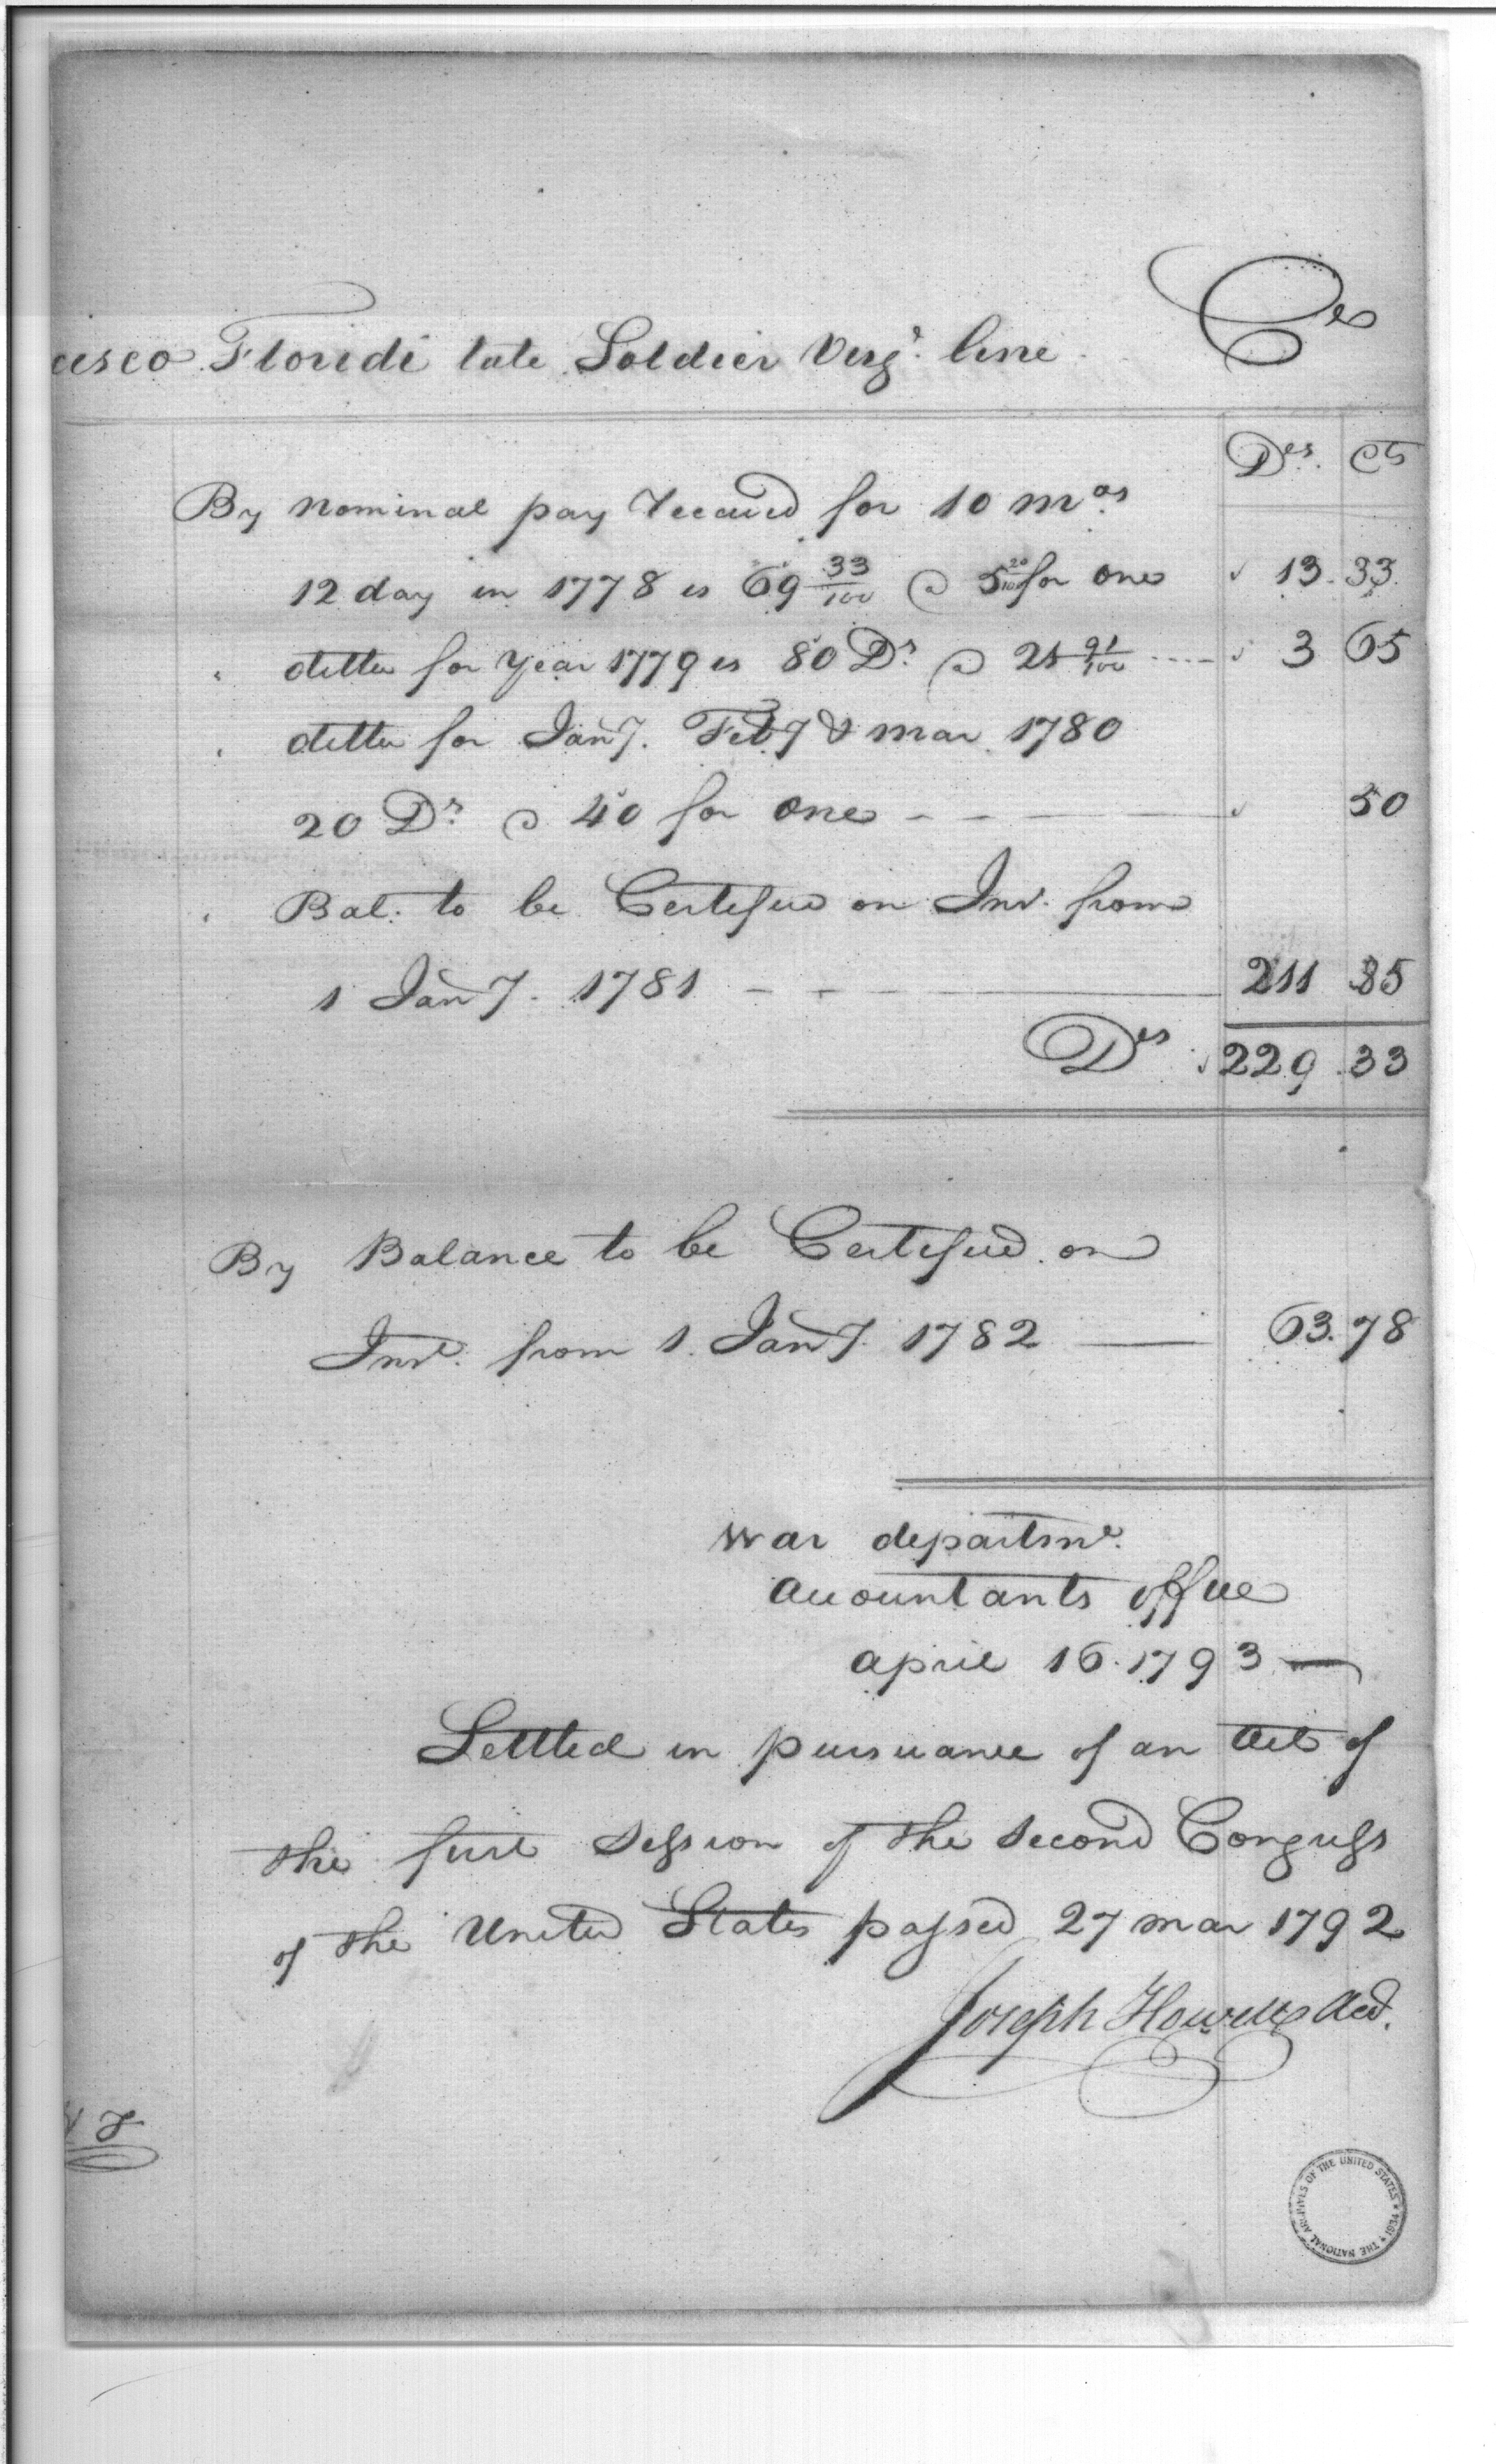 cisco Floridi late Soldier Virgª. line Cr
Drs. Cts
By nominal pay Received for 10 mos
12 day in 1778 is 69 33/100 @ 5 20/100 for one 13. 33
ditto for Year 1779 is 80 Ds. @ 21 91/100 3 65
ditto for Jany. Feby & mar 1780
20 Ds. @ 40 for one 50
Bal. to be Certified on Int. from
1 Jany. 1781 211 85
Drs 229 33
By Balance to be Certified on
Int. from 1. Jany. 1782 63.78
War departmt.
Accountants office
april 16. 1793
Settled in pursuance of an act of
the first Session of the Second Congress
of the United States passed 27 mar 1792
Joseph Howell Acct.
THE NATIONAL ARCHIVES OF THE UNITED STATES * 1934 *